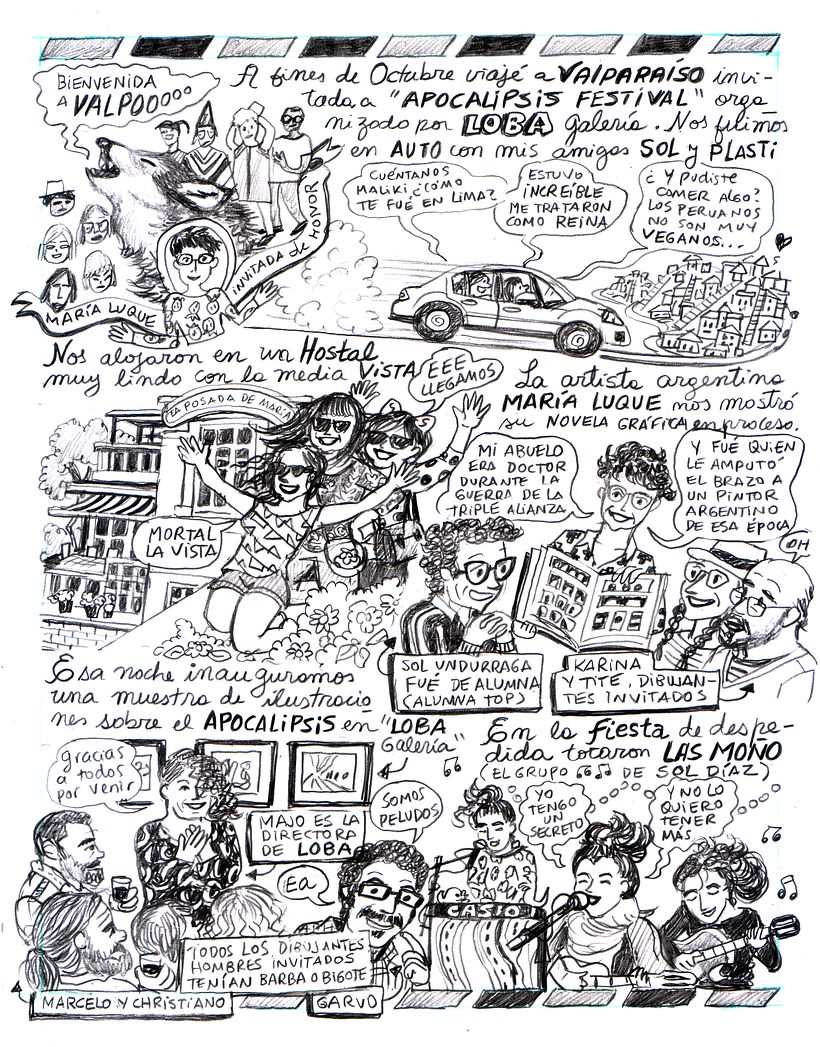 BIENVENIDA
A VALPOOOOOO
A fines de Octubre viajé a VALPARAÍSO invi-
tada a "APOCALIPSIS FESTIVAL" orga
nizado por LOBA Galería. Nos fuimos
en AUTO con mis amigas SOL y PLASTi
INVITADA de HONOR
MARÍA LUQUE
CUÉNTANOS
MALIKI ¿CÓMO
TE FUÉ EN LIMA?
ESTUVO
INCREÍBLE
ME TRATARON
COMO REINA
¿Y PUDISTE
COMER ALGO?
LOS PERUANOS
NO SON MUY
VEGANOS...
Nos alojaron en un Hostal
muy lindo con la media VISTA
EEE
LLEGAMOS
LA POSADA DE MARÍA
MORTAL
LA VISTA
La artista argentina
MARÍA LUQUE nos mostró
su NOVELA GRÁFICA en proceso.
MI ABUELO
ERA DOCTOR
DURANTE LA
GUERRA DE LA
TRIPLE ALIANZA
Y FUÉ QUIEN
LE AMPUTÓ
EL BRAZO A
UN PINTOR
ARGENTINO
DE ESA ÉPOCA
OH
SOL UNDURRAGA
FUÉ DE ALUMNA
(ALUMNA TOP)
KARINA
Y TITE, DIBUJAN-
TES INVITADOS
Esa noche inauguramos
una muestra de ilustracio
nes sobre el APOCALIPSIS en "LOBA
Galería"
gracias
a todos
por venir
MAJO ES LA
DIRECTORA
DE LOBA
SOMOS
PELUDOS
Ea
TODOS LOS DIBUJANTES
HOMBRES INVITADOS
TENÍAN BARBA O BIGOTE
MARCELO Y CHRISTIANO
GARVO
En la fiesta de despe-
dida tocaron LAS MOÑO
(EL GRUPO DE SOL DÍAZ)
YO
TENGO
UN
SECRETO
Y NO LO
QUIERO
TENER
MÁS
CASIO